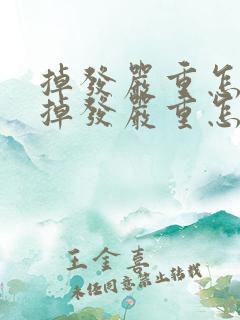 掉發嚴重怎
掉發嚴重怎
王金喜
未经同意禁止转载